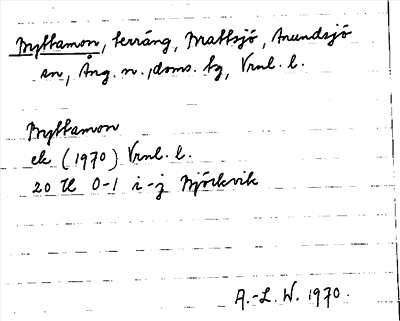 Myttamon, terräng, Mattsjö, Anundsjö
sn, Ång. n., doms. tg, Vrnl. l.
Myttamon
ek (1970) Vrnl. l.
20 H 0-1 i-j Björkvik
A.-L. W. 1970.